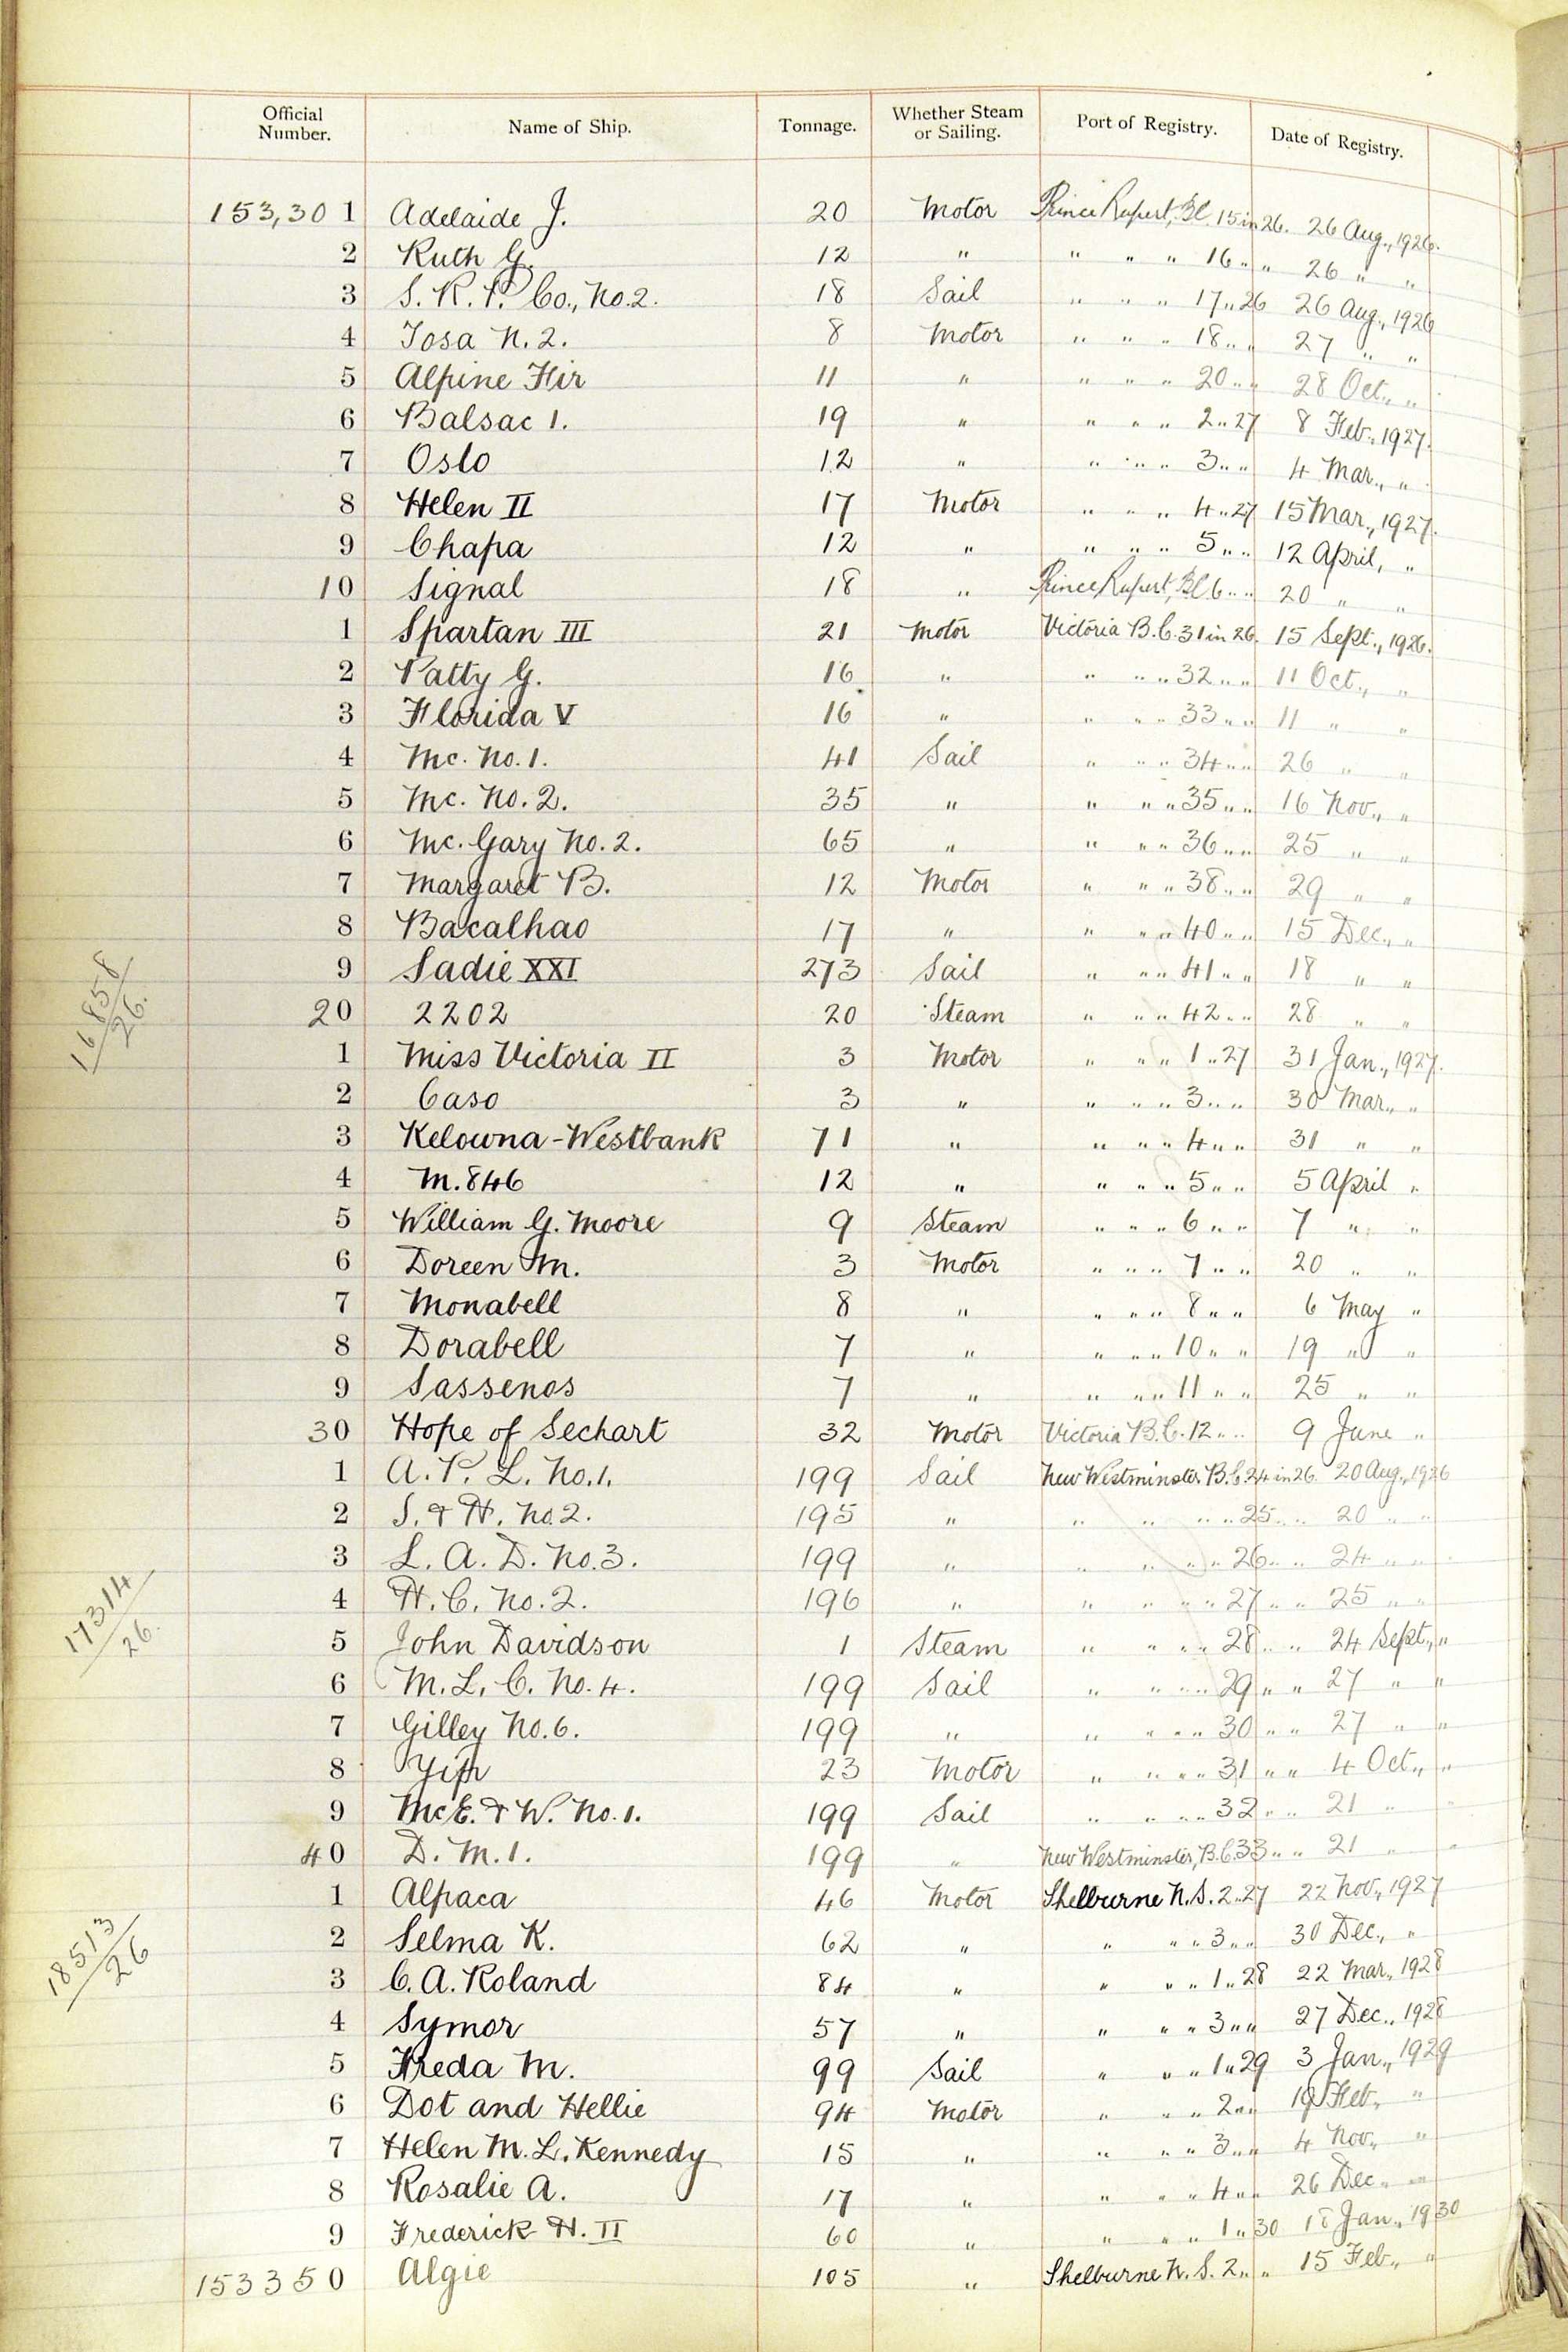 Official Number. Name of Ship. Tonnage. Whether Steam or Sailing. Port of Registry. Date of Registry.
153,301 Adelaide J. 20 Motor Prince Rupert, B.C. 15 in 26. 26 Aug., 1926.
2 Ruth G. 12 " " " " 16 " " 26 " "
3 S. R. P. Co., No. 2. 18 Sail " " " 17 " 26 26 Aug., 1926
4 Tosa N. 2. 8 Motor " " " 18 " " 27 " "
5 Alpine Fir 11 " " " " 20 " " 28 Oct., "
6 Balsac 1. 19 " " " " 2 " 27 8 Feb., 1927.
7 Oslo 12 " " " " 3 " " 4 Mar., "
8 Helen II 17 Motor " " " 4 " 27 15 Mar., 1927.
9 Chapa 12 " " " " 5 " " 12 April, "
10 Signal 18 " Prince Rupert, B.C. 6 " " 20 " "
1 Spartan III 21 Motor Victoria B.C. 31 in 26. 15 Sept., 1926.
2 Patty G. 16 " " " " 32 " " 11 Oct., "
3 Florida V 16 " " " " 33 " " 11 " "
4 Mc. No. 1. 41 Sail " " " 34 " " 26 " "
5 Mc. No. 2. 35 " " " " 35 " " 16 Nov., "
6 Mc. Gary No. 2. 65 " " " " 36 " " 25 " "
7 Margaret B. 12 Motor " " " 38 " " 29 " "
8 Bacalhao 17 " " " " 40 " " 15 Dec., "
9 Sadie XXI 273 Sail " " " 41 " " 18 " "
16858/26.
20 2202 20 Steam " " " 42 " " 28 " "
1 Miss Victoria II 3 Motor " " " 1 " 27 31 Jan., 1927.
2 Caso 3 " " " " 3 " " 30 Mar., "
3 Kelowna-Westbank 71 " " " " 4 " " 31 " "
4 M. 846 12 " " " " 5 " " 5 April "
5 William G. Moore 9 Steam " " " 6 " " 7 " "
6 Doreen M. 3 Motor " " " 7 " " 20 " "
7 Monabell 8 " " " " 8 " " 6 May "
8 Dorabell 7 " " " " 10 " " 19 " "
9 Sassenos 7 " " " " 11 " " 25 " "
30 Hope of Sechart 32 Motor Victoria B.C. 12 " " 9 June "
1 A. P. L. No. 1. 199 Sail New Westminster B.C. 24 in 26. 20 Aug., 1926
2 S. & H. No. 2. 195 " " " " " 25 " " 20 " "
3 L. A. D. No. 3. 199 " " " " " 26 " " 24 " "
4 H. C. No. 2. 196 " " " " " 27 " " 25 " "
17314/26.
5 John Davidson 1 Steam " " " " 28 " " 24 Sept., "
6 M. L. C. No. 4. 199 Sail " " " " 29 " " 27 " "
7 Gilley No. 6. 199 " " " " " 30 " " 27 " "
8 Yip 23 Motor " " " " 31 " " 4 Oct., "
9 McE. & W. No. 1. 199 Sail " " " " 32 " " 21 " "
40 D. M. 1. 199 " New Westminster, B.C. 33 " " 21 " "
1 Alpaca 46 Motor Shelburne N.S. 2 " 27 22 Nov., 1927
2 Selma K. 62 " " " " 3 " " 30 Dec., "
18513/26
3 C. A. Roland 84 " " " " 1 " 28 22 Mar., 1928
4 Symor 57 " " " " 3 " " 27 Dec., 1928
5 Freda M. 99 Sail " " " 1 " 29 3 Jan., 1929
6 Dot and Hellie 94 Motor " " " 2 " " Feb., "
7 Helen M. L. Kennedy 15 " " " " 3 " " 4 Nov., "
8 Rosalie A. 17 " " " " 4 " " 26 Dec. "
9 Frederick H. II 60 " " " " 1 " 30 Jan., 1930
153350 Algie 105 " Shelburne N.S. 2 " " 15 Feb., "